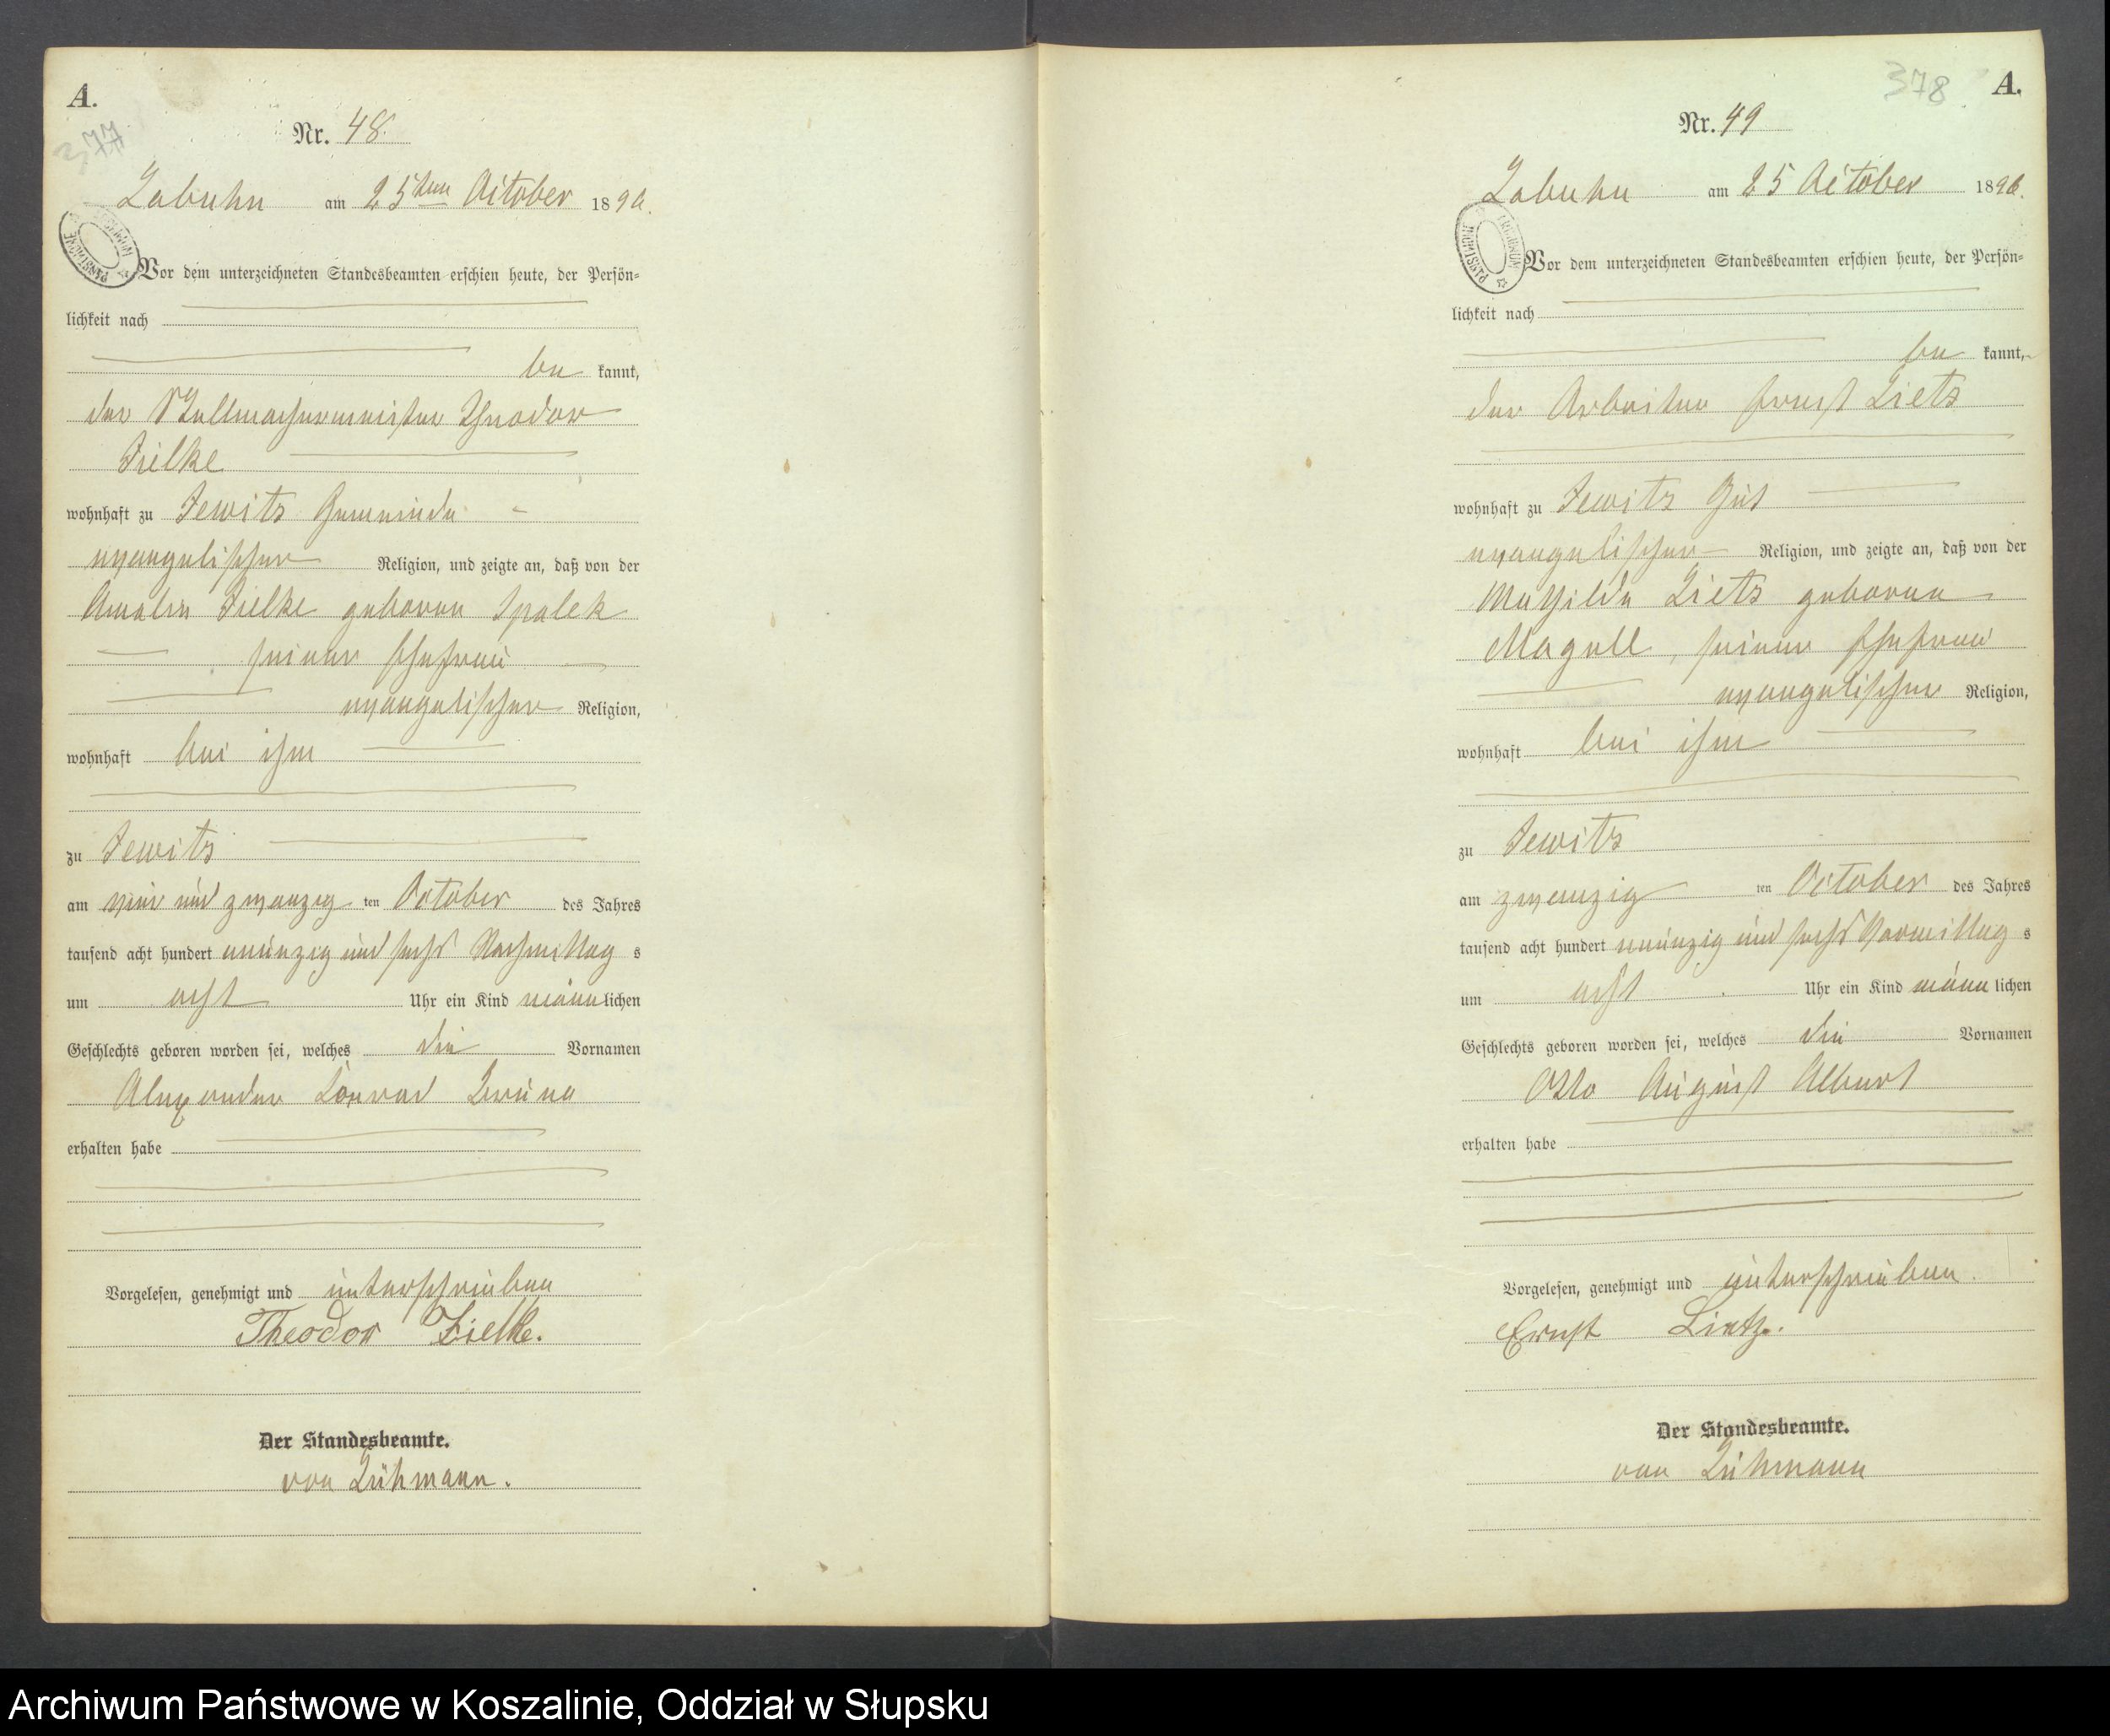 A.
377
Nr. 48.
Labuhn am 25ten October 1896.
Vor dem unterzeichneten Standesbeamten erschien heute, der Persön-
lichkeit nach
be kannt,
der Stellmachermeister Theodor
Zielke
wohnhaft zu Jewitz Gemeinde
evangelischer Religion, und zeigte an, daß von der
Amalie Zielke geboren Spalek
seiner Ehefrau
evangelischer Religion,
wohnhaft bei ihm
zu Jewitz
am vier und zwanzig ten October des Jahres
tausend acht hundert neunzig und sechs Nachmittag s
um acht Uhr ein Kind männlichen
Geschlechts geboren worden sei, welches die Vornamen
Alexander Conrad Bruno
erhalten habe
Vorgelesen, genehmigt und unterschrieben
Theodor Zielke.
Der Standesbeamte.
von Lühmann.
378
A.
Nr. 49
Labuhn am 25 October 1896.
Vor dem unterzeichneten Standesbeamten erschien heute, der Persön-
lichkeit nach
be kannt,
der Arbeiter Ernst Lietz
wohnhaft zu Jewitz Gut
evangelischer Religion, und zeigte an, daß von der
Mathilde Lietz geborene
Magull, seiner Ehefrau
evangelischer Religion,
wohnhaft bei ihm
zu Jewitz
am zwanzig ten October des Jahres
tausend acht hundert neunzig und sechs Vormittag s
um acht Uhr ein Kind männlichen
Geschlechts geboren worden sei, welches die Vornamen
Otto August Albert
erhalten habe
Vorgelesen, genehmigt und unterschrieben.
Ernst Lietz.
Der Standesbeamte.
von Lühmann
Archiwum Państwowe w Koszalinie, Oddział w Słupsku